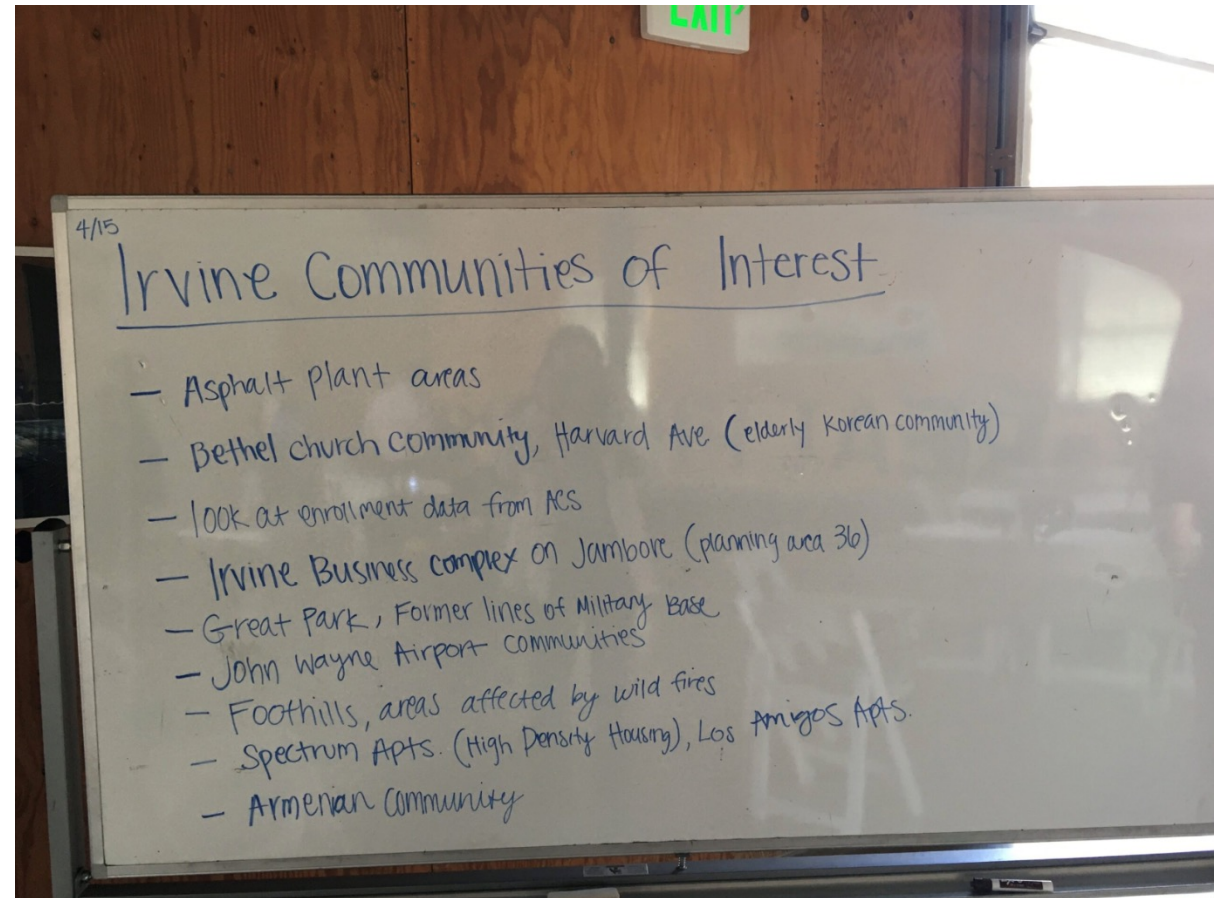 EXIT
4/15
Irvine Communities of Interest
— Asphalt plant areas
— Bethel church community, Harvard Ave (elderly Korean community)
— look at enrollment data from ACS
— Irvine Business complex on Jambore (planning area 36)
— Great Park, Former lines of Military Base
— John Wayne Airport communities
— Foothills, areas affected by wild fires
— Spectrum Apts. (High Density Housing), Los Amigos Apts.
— Armenian Community